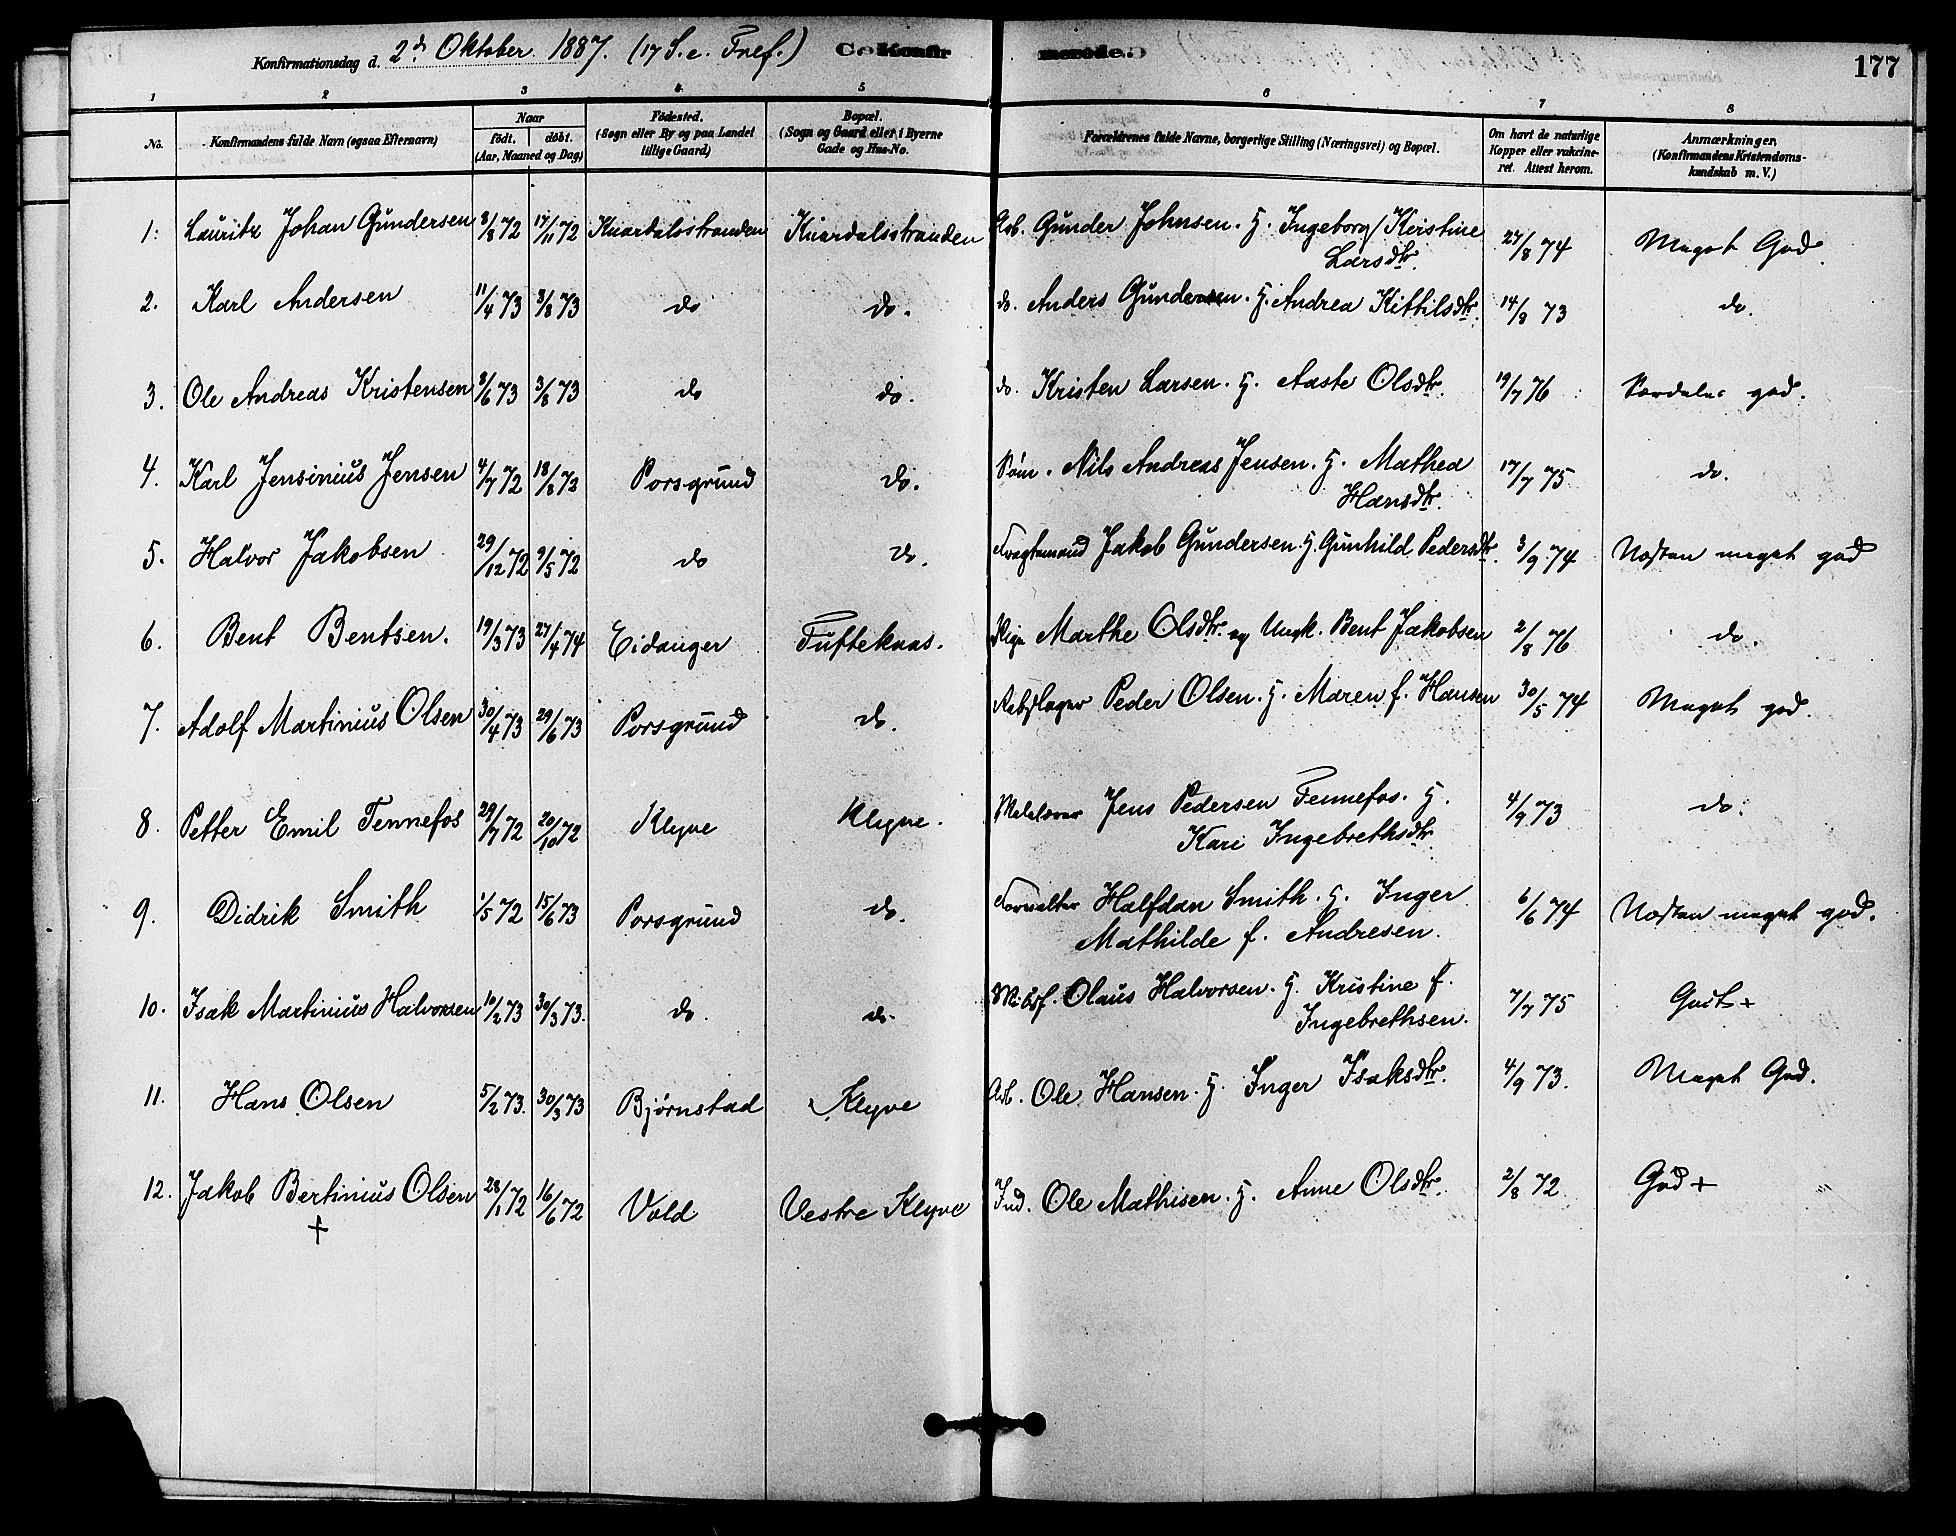 Konfirmationsdag d. 2d Oktober 1887. (17 S. e. Tref.) Konfirmerede. 177
1 2 3 4 5 6 7 8
No. Konfirmandens fulde Navn (ogsaa Efternavn) Naar födt, döbt. (Aar, Maaned og Dag) Födested. (Sogn eller By og paa Landet tillige Gaard) Bopæl. (Sogn og Gaard eller i Byerne Gade og Hus-No. Forældrenes fulde Navne, borgerlige Stilling (Næringsvei) og Bopæl. Om havt de naturlige Kopper eller vakcineret. Attest herom. Anmærkninger. (Konfirmandens Kristendomskundskab m. V.)
1. Lauritz Johan Gundersen 8/8 72 17/11 72 Knardalsstranden Knardalsstranden Arb. Gunder Johnsen. H. Ingeborg Kirstine
Larsdtr. 27/8 74 Meget God.
2. Karl Andersen 11/4 73 3/8 73 do do. do. Anders Gundersen. H. Andrea Kittilsdtr. 14/8 73 do.
3. Ole Andreas Kristensen 8/6 73 3/8 73 do do. do. Kristen Larsen. H. Aaste Olsdtr. 19/7 76 Særdeles god.
4. Karl Jensinius Jensen 4/7 72 18/8 72 Porsgrund do. Søm. Nils Andreas Jensen. H. Mathea
Hansdtr. 17/7 75 do.
5. Halvor Jakobsen 29/12 72 9/5 72 do do. Fragtemand Jakob Gundersen. H. Gunhild Pedersdtr. 3/9 74 Næsten meget god
6. Bent Bentsen. 19/3 73 27/4 74 Eidanger Tufteknas. Pige Marthe Olsdtr. og Ungk. Bent Jakobsen 2/8 76 do.
7. Adolf Martinius Olsen 30/4 73 29/6 73 Porsgrund do. Peder Olsen. H. Maren f. Hansen 30/5 74 Meget god.
8. Petter Emil Tennefos 29/7 72 20/10 72 Klyve Klyve. Jens Pedersen Tennefos. H.
Kari Ingebrethsdtr. 4/9 73 do.
9. Didrik Smith 1/5 72 15/6 73 Porsgrund do. Forvalter Halfdan Smith. H. Inger
Mathilde f. Andresen. 6/6 74 Næsten meget god.
10. Isak Martinius Halvorsen 10/2 73 30/3 73. do. do. Olaus Halvorsen. H. Kristine f.
Ingebrethsen. 7/7 75 Godt +
11. Hans Olsen 5/2 73. 30/3 73 Bjørnstad Klyve Arb. Ole Hansen. H. Inger Isaksdtr. 4/9 73. Meget God.
12. Jakob Bertinius Olsen 28/1 72 16/6 72 Vold Vestre Klyve Ind. Ole Mathisen. H. Anne Olsdtr. 2/8 72 God +
+